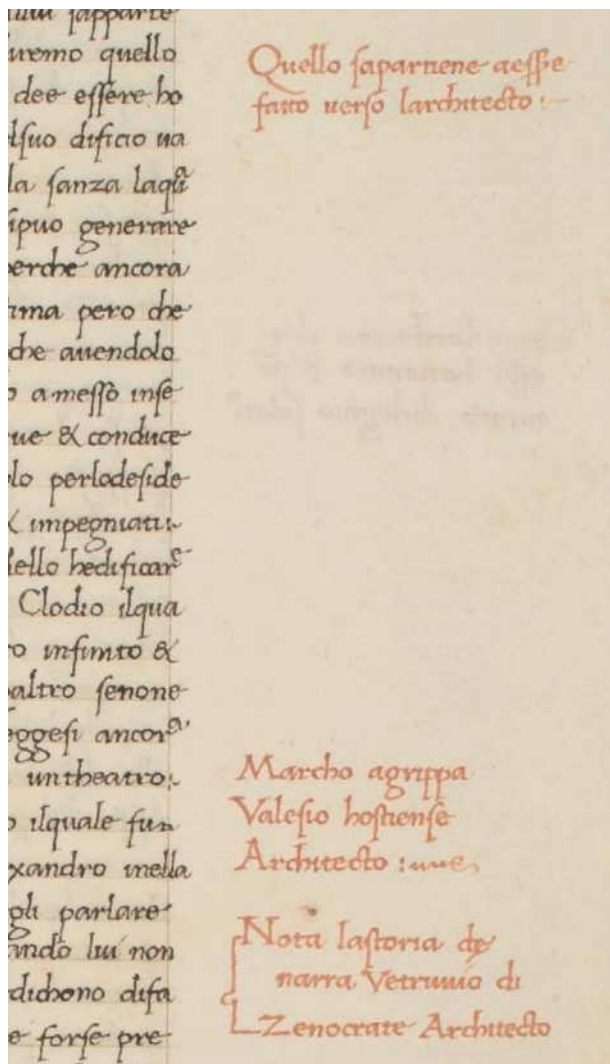 sapparte
uremo quello
dee essere ho
lsuo dificio ua
la sanza laqͣl
ipuo generare
perche ancora
ima pero che
che auendolo
o amesso inse
ue & conduce
lo perlodeside
& impegniati
ello hedificarͤ
Clodio ilqua
ro infinito &
paltro senone
eggesi ancorᵃ
untheatro:
o ilquale fun
xandro inella
gli parlare
ando lui non
dichono difa
e forse pre
Quello sapartiene aesse
fatto uerso larchitecto :~
Marcho agrippa
Valesio hostiense
Architecto :
Nota lastoria che
narra Vetruuio di
Zenocrate Architecto